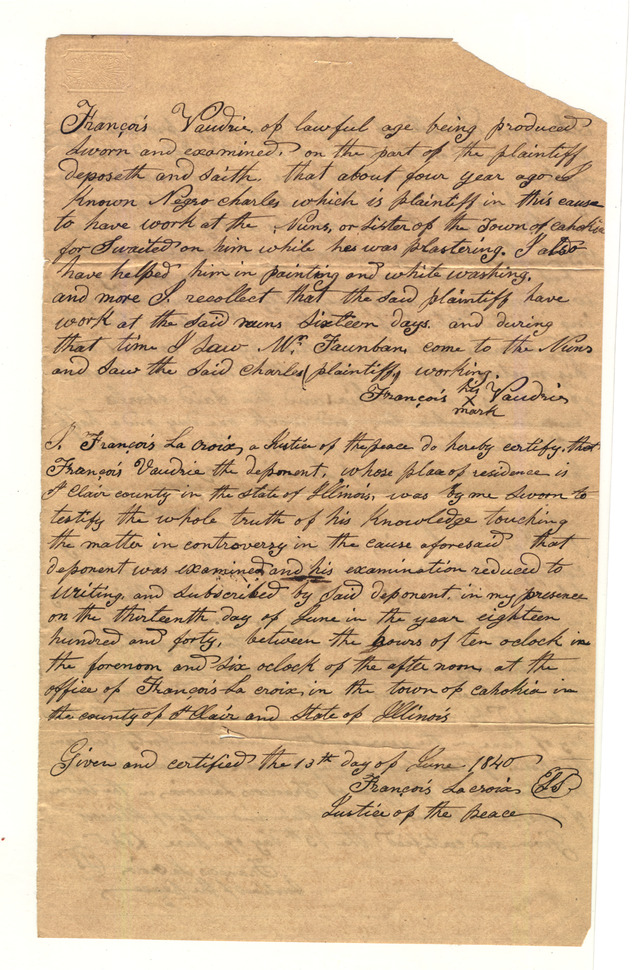 François Vaudrie, of lawful age being produced
sworn and examined, on the part of the plaintiff
deposeth and saith that about four year ago I
Known Negro charles which is plaintiff in this cause
to have work at the Nuns, or sister of the Town of cahokia
for I waited on him while hes was plastering. I also
have helped him in painting and white washing.
and more I recollect that the said plaintiff have
work at the said nuns sixteen days. and during
that time I saw Mr. Faunban, come to the Nuns
and saw the said charles (plaintiff,) working.
François his Vaudrie
x
mark
I. François La croix, a Justice of the peace do hereby certify, that
François Vaudrie the deponent, whose place of residence is
St Clair county in the state of Illinois, was by me sworn to
testify the whole truth of his Knowledge touching
the matter in controversy in the cause aforesaid that
deponent was examined and his examination reduced to
writing, and subscribed by said deponent. in my presence
on the thirteenth day of June in the year eighteen
hundred and forty, between the hours of ten oclock in
the forenoon and six oclock of the after noon, at the
office of François La croix, in the town of cahokia in
the county of St Clair and state of Illinois
Given and certified the 13th day of June 1840
François Lacroix
Justice of the peace